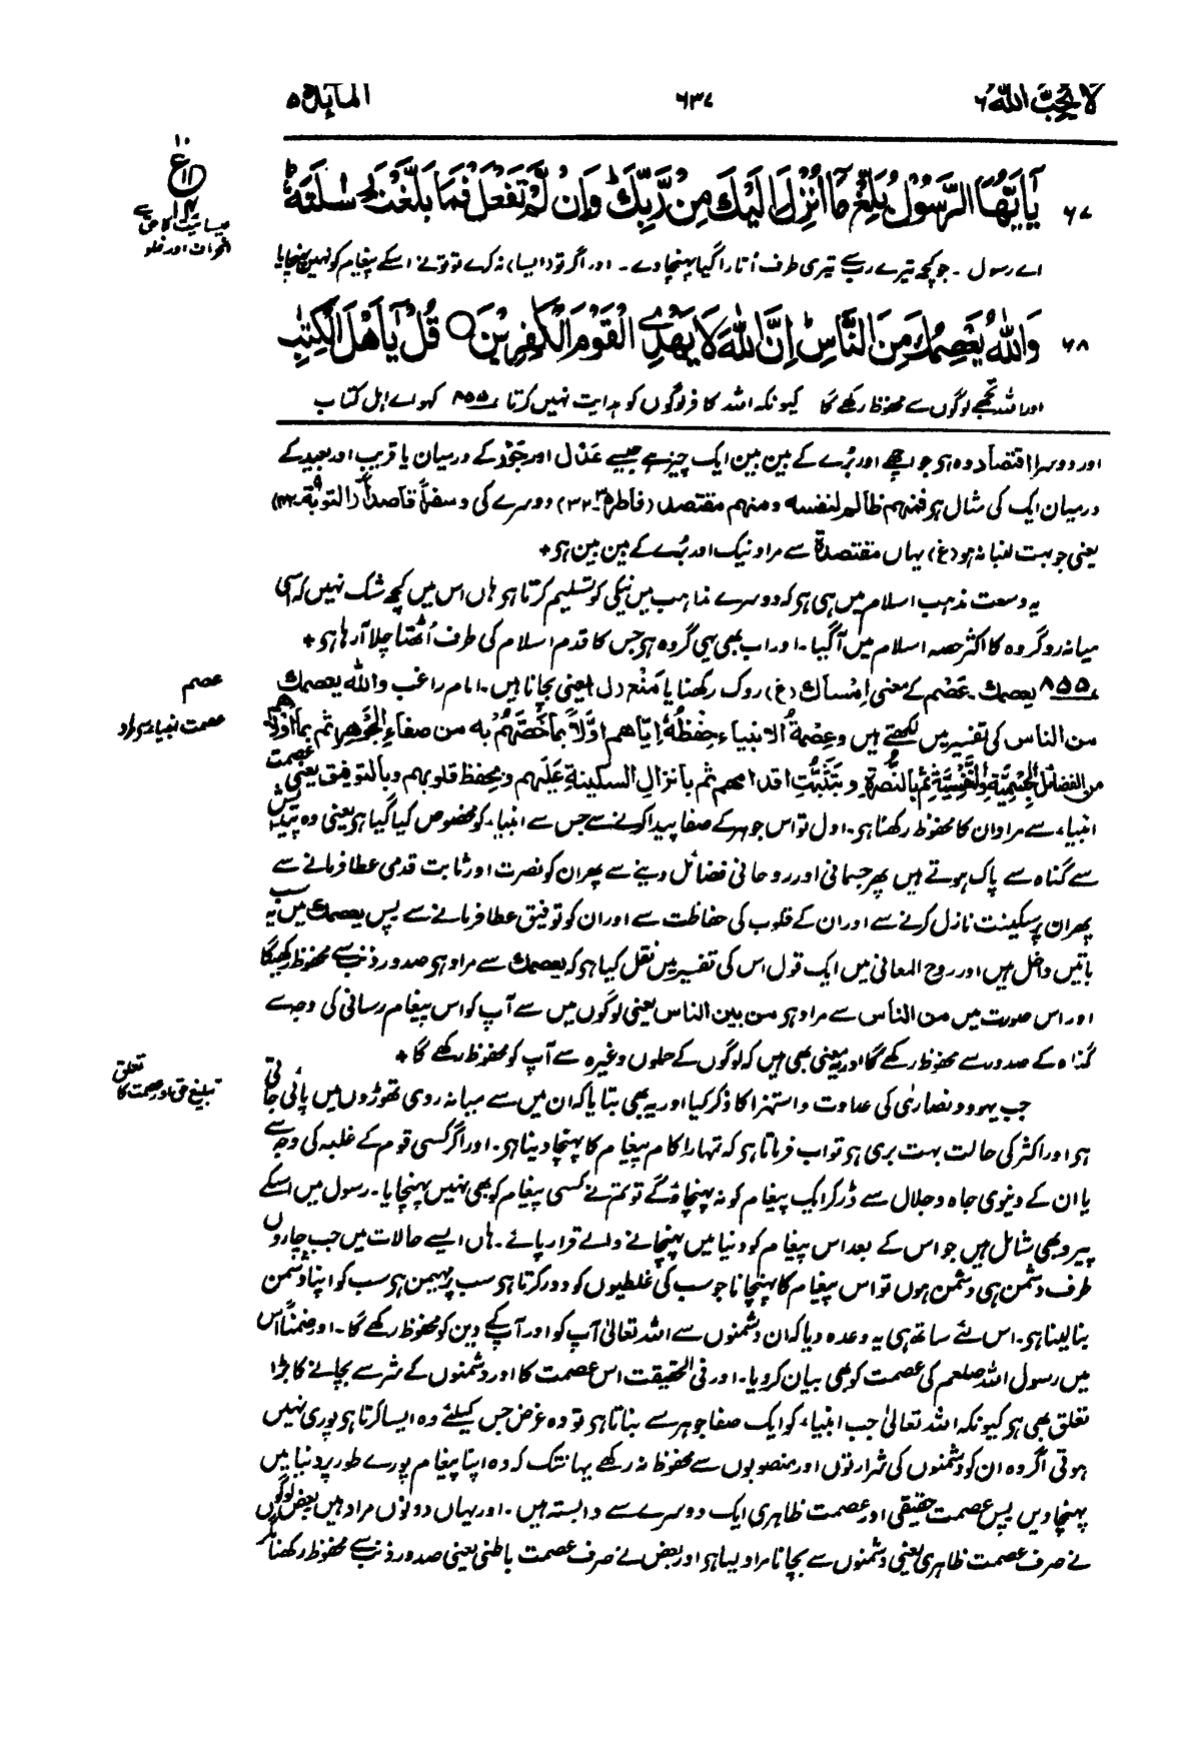 لا یحب اللہ ۶
۶۳۷
المآئدۃ ۵
۱۰
ع
۱۴
عیسائیت کا حق سے
انحراف اور غلو
۶۷ یٰۤاَیُّهَا الرَّسُوْلُ بَلِّغْ مَاۤ اُنْزِلَ اِلَیْكَ مِنْ رَّبِّكَ ؕ وَاِنْ لَّمْ تَفْعَلْ فَمَا بَلَّغْتَ رِسٰلَتَهٗ ؕ
اے رسول ۔ جو کچھ تیرے رب سے تیری طرف اُتارا گیا پہنچا دے ۔ اور اگر تو (ایسا) نہ کرے تو تونے اسکے پیغام کو نہیں پہنچایا
۶۸ وَاللّٰهُ یَعْصِمُكَ مِنَ النَّاسِ ؕ اِنَّ اللّٰهَ لَا یَهْدِی الْقَوْمَ الْكٰفِرِیْنَ ○ قُلْ یٰۤاَهْلَ الْكِتٰبِ
اور اللہ تجھے لوگوں سے محفوظ رکھے گا کیونکہ اللہ کافر لوگوں کو ہدایت نہیں کرتا ۸۵۵ کہو اے اہل کتاب
اور دوسرا اقتصاد وہ ہی جو اچھے اور بُرے کے بین بین ایک چیز ہے جیسے عَدْل اور جَوْر کے درمیان یا قریب اور بعید کے
درمیان ایک کی مثال ہو فمنہم ظالم لنفسہ ومنہم مقتصد (فاطر۳۵۔۳۲) دوسرے کی وسفراً قاصداً (التوبۃ ۹۔۴۲)
یعنی جو بہت لنبا نہ ہو (غ) یہاں مقتصدۃ سے مراد نیک اور بُرے کے بین بین ہو +
یہ وسعت مذہب اسلام میں ہی ہو کہ دوسرے مذاہب میں نیکی کو تسلیم کرتا ہو ہاں اس میں کچھ شک نہیں کہ اسی
میانہ رو گروہ کا اکثر حصہ اسلام میں آگیا ۔ اور اب بھی یہی گروہ ہو جس کا قدم اسلام کی طرف اُٹھتا چلا آرہا ہو +
۸۵۵ یعصمك ۔ عَصْم کے معنی اِمْسَاك (غ) روک رکھنا یا مَنْع دل یعنی بچانا ہیں ۔ امام راغب واللہ یعصمك
عصم
من الناس کی تفسیر میں لکھتے ہیں وعِصْمَةُ الانبیاء حِفْظُهٗ اِیَّاهم اوّلاً بما خَصَّهُمْ به من صفاءِ الجَوْهَر ثم بما اَوْلَاهُمْ
عصمت انبیاء سے مراد
من الفضائل الجِسْمِیَّةِ والنَّفْسِیَّةِ ثُمَّ بالنُّصْرَةِ و بتَثَبُّتِ اقدامهم ثم بانزال السكینةِ علیهم و بحفظ قلوبهم وبالتوفیق یعنی عصمت
انبیاء سے مراد ان کا محفوظ رکھنا ہو ۔ اول تو اس جوہر کے صفا پیدا کرنے سے جس سے انبیاء کو مخصوص کیا گیا ہو یعنی وہ پیدائش
سے گناہ سے پاک ہوتے ہیں پھر جسمانی اور روحانی فضائل دینے سے پھر ان کو نصرت اور ثابت قدمی عطا فرمانے سے
پھر ان پر سکینت نازل کرنے سے اور ان کے قلوب کی حفاظت سے اور ان کو توفیق عطا فرمانے سے پس یعصمك میں یہ سب
باتیں داخل ہیں اور روح المعانی میں ایک قول اس کی تفسیر میں نقل کیا ہو کہ یعصمك سے مراد ہو صدور ذنب سے محفوظ رکھیگا
اور اس صورت میں من الناس سے مراد ہو من بین الناس یعنی لوگوں میں سے آپ کو اس پیغام رسانی کی وجہ سے
گناہ کے صدور سے محفوظ رکھے گا اور یہ معنی بھی ہیں کہ لوگوں کے حملوں وغیرہ سے آپ کو محفوظ رکھے گا +
تعلق
تبلیغ حق اور عصمت کا
جب یہود و نصاریٰ کی عداوت و استہزا کا ذکر کیا اور یہ بھی بتا یا کہ ان میں سے میانہ روی تھوڑوں میں پائی جاتی
ہو اور اکثر کی حالت بہت بری ہو تو اب فرماتا ہو کہ تمہارا کام پیغام کا پہنچا دینا ہو ۔ اور اگر کسی قوم کے غلبہ کی وجہ سے
یا ان کے دنیوی جاہ و جلال سے ڈر کر ایک پیغام کو نہ پہنچاؤ گے تو تم نے کسی پیغام کو بھی نہیں پہنچایا ۔ رسول میں اسکے
پیرو بھی شامل ہیں جو اس کے بعد اس پیغام کو دنیا میں پہنچانے والے قرار پائے ۔ ہاں ایسے حالات میں جب چاروں
طرف دشمن ہی دشمن ہوں تو اس پیغام کا پہنچانا جو سب کی غلطیوں کو دور کرتا ہو سب پر مہیمن ہو سب کو اپنا دشمن
بنا لینا ہو ۔ اس لئے ساتھ ہی یہ وعدہ دیا کہ ان دشمنوں سے اللہ تعالیٰ آپ کو اور آپ کے دین کو محفوظ رکھے گا ۔ اور ضمناً اس
میں رسول اللہ صلعم کی عصمت کو بھی بیان کر دیا ۔ اور فی الحقیقت اس عصمت کا اور دشمنوں کے شر سے بچانے کا بڑا
تعلق بھی ہو کیونکہ اللہ تعالیٰ جب انبیاء کو ایک صفا جوہر سے بناتا ہو تو وہ غرض جس کیلئے وہ ایسا کرتا ہو پوری نہیں
ہوتی اگر وہ ان کو دشمنوں کی شرارتوں اور منصوبوں سے محفوظ نہ رکھے یہانتک کہ وہ اپنا پیغام پورے طور پر دنیا میں
پہنچا دیں پس عصمت حقیقی اور عصمت ظاہری ایک دوسرے سے وابستہ ہیں ۔ اور یہاں دونوں مراد ہیں بعض لوگوں
نے صرف عصمت ظاہری یعنی دشمنوں سے بچانا مراد لیا ہو اور بعض نے صرف عصمت باطنی یعنی صدور ذنب سے محفوظ رکھنا مگر